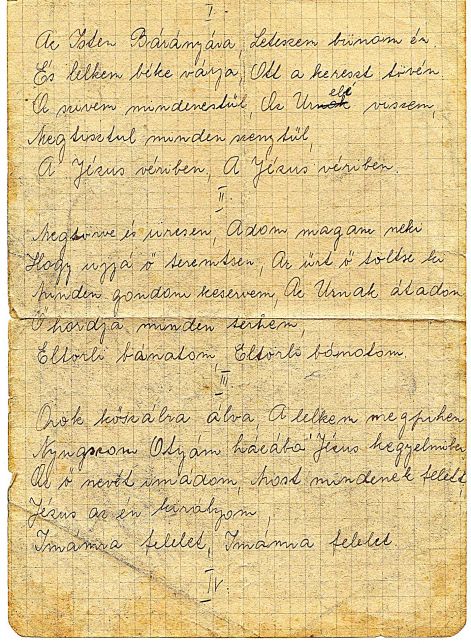 I.
Az Isten Bárányára, Leteszem bűnöm én.
És lelkem béke várja, Ott a kereszt tövén
A szivem mindenestűl, Az Urnak elé viszem,
Megtisztul minden szenytűl,
A Jézus vériben, A Jézus vériben.
II.
Megtörve és üresen, Adom magam neki
Hogy ujjá ő teremtsen, Az űrt ő töltse ki
Minden gondom keservem, Az Urnak átadom
Ő hordja, minden terhem,
Eltörli bánatom, Eltörli bánatom.
III
Örök kőszálra álva, A lelkem megpihen
Nyugszom Atyám házába Jézus kegyelmibe
Az ő nevét imádom, Most mindenek felett,
Jézus az én királyom
Imámra felelet, Imámra felelet
IV.